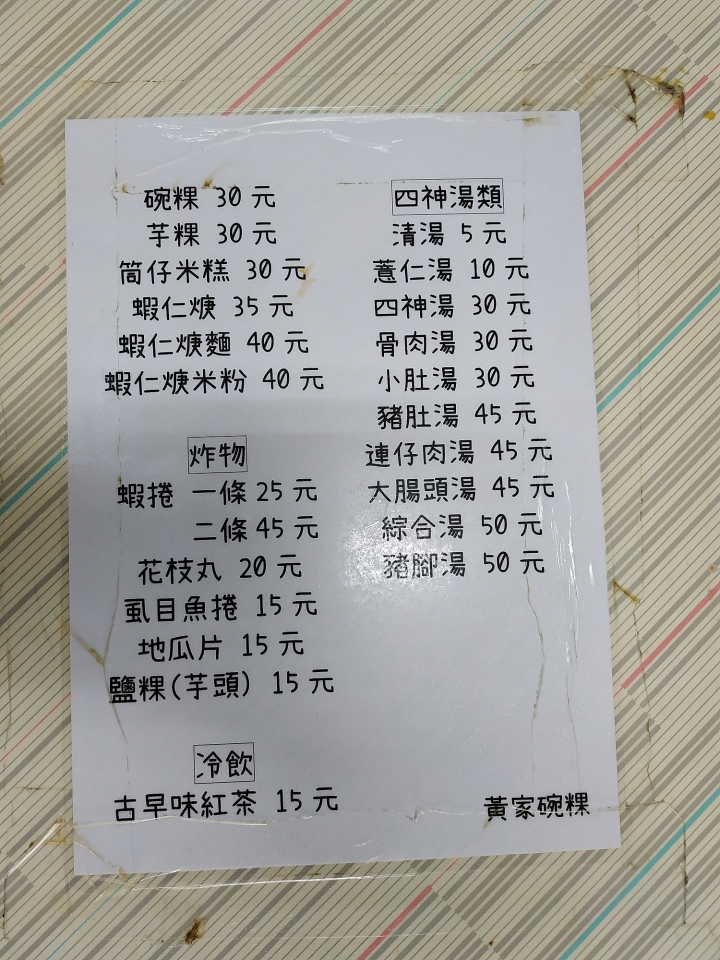 碗粿 30 元
芋粿 30 元
筒仔米糕 30 元
蝦仁焿 35 元
蝦仁焿麵 40 元
蝦仁焿米粉 40 元
炸物
蝦捲 一條 25 元
二條 45 元
花枝丸 20 元
虱目魚捲 15 元
地瓜片 15 元
鹽粿(芋頭) 15 元
冷飲
古早味紅茶 15 元
四神湯類
清湯 5 元
薏仁湯 10 元
四神湯 30 元
骨肉湯 30 元
小肚湯 30 元
豬肚湯 45 元
連仔肉湯 45 元
大腸頭湯 45 元
綜合湯 50 元
豬腳湯 50 元
黃家碗粿